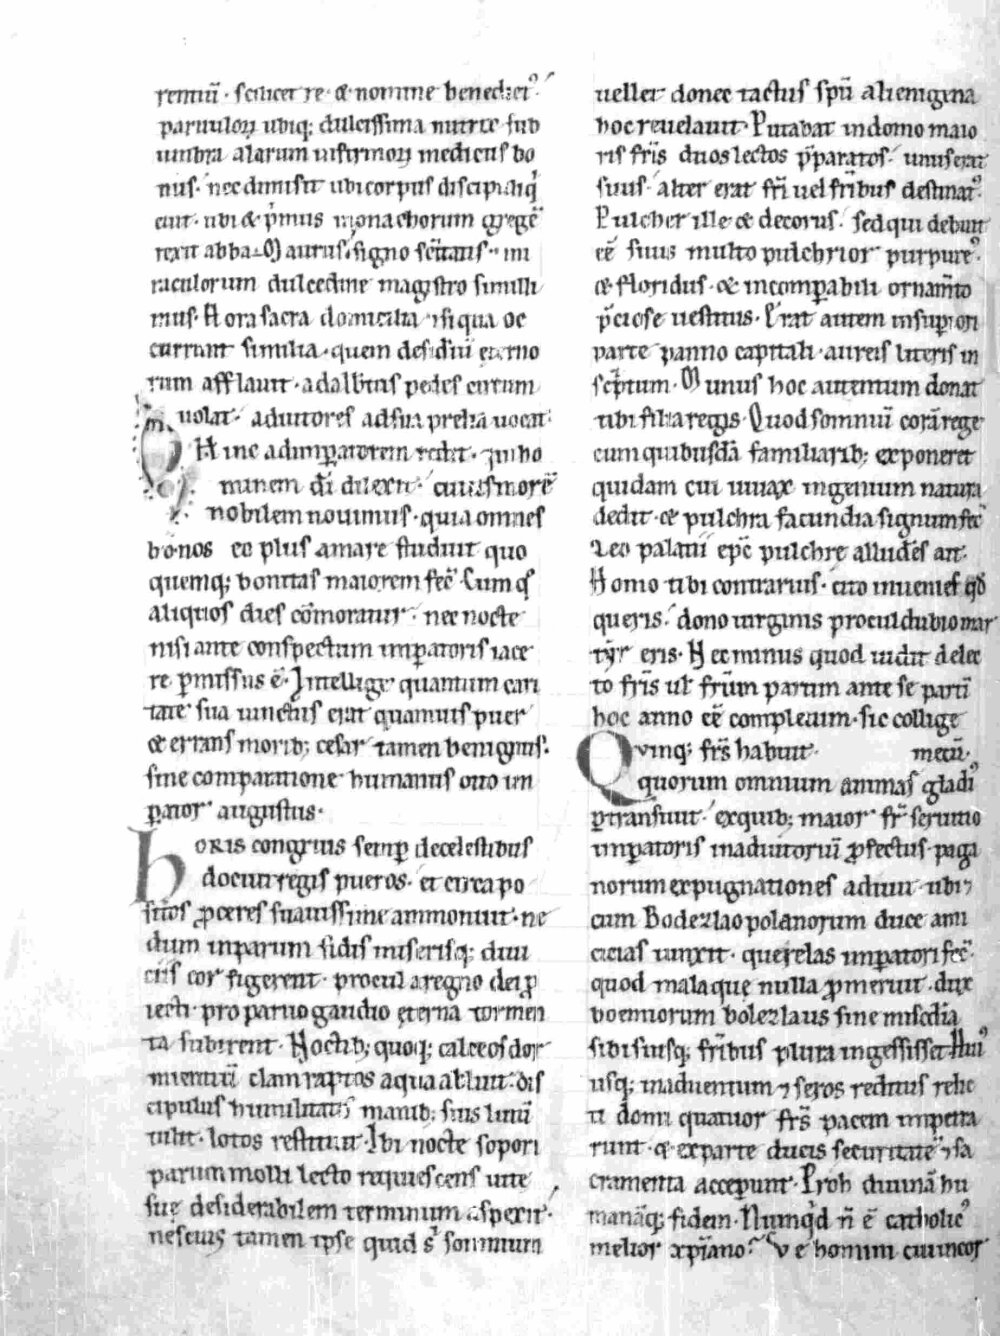 rentiū · scilicet re · & nomine benedict᷒ ·
paruulorꝝ ubiq; dulcissima nutrix sub
umbra alarum infirmorꝝ medicus bo
nus · nec dimisit ubi corpus discipuliq̇
erat · ubi & p̄mus monachorum gregē
rexit abba · Maurus · signo sc̄itatis · mi
raculorum dulcedine magistro simili
mus · Hora sacra domicilia ⁊ siqua oc
currunt similia · quem desideriū eterno
rum afflauit · adalb̄tus pedes cursum
uolat · adiutores ad sua prelia uocat ·
Hinc ad imꝑatorem redit · q̄m ho
minem dī dilexit · cuius morē
nobilem nouimus · quia omnes
bonos eo plus amare studuit quo
quemq; bonitas maiorem fec̄ · Cumq̄
aliquos dies cōmoratur · nec nocte
nisi ante conspectum imꝑatoris iace
re ꝑmissus ē · Intellige quantum cari
tate sua iunctus erat quamuis puer
& errans morib; cesar tamen benignus ·
sine comparatione humanus otto im
ꝑator augustus ·
horis congruis semꝑ de celestibus
docuit regis pueros · et circa po
sitos ꝓceres suauissime ammonuit · ne
dum inparum fidis miserisq; diui
ciis cor figerent · procul a regno dei ꝓ
iecti · pro paruo gaudio ęterna tormen
ta subirent · Noctib; quoq; calceos dor
mientiū clam raptos aqua abluit · dis
cipulus humilitatis manib; suis limū
tulit · lotos restituit · Ibi nocte sopori
parum molli lecto requiescens uite
suę desiderabilem terminum asperit ·
nescius tamen ipse quid s᷒ somnium
uellet donec tactus spū alienigina
hoc reuelauit · Putabat in domo maio
ris fr̄is duos lectos p̄paratos · unus erat
suus · alter erat fr̄i uel fr̄ibus destinat᷒ ·
Pulcher ille & decorus · sed qui debuit
eē suus multo pulchrior purpure᷒ ·
& floridus · & incomꝑabili ornam̄to
p̄ciose uestitus · Erat autem in suꝑiori
parte panno capitali · aureis literis in
sc̄ptum · Munus hoc aurentum donat
tibi filia regis · Quod somniū corā rege
cum quibusdā familiarib; exponeret
quidam cui uiuax ingenium natura
dedit · & pulchra facundia signum fec̄
Leo palatii epc̄ pulchre alludēs ait ·
Homo tibi contrarius · cito inuenies qđ
queris · dono uirginis procul dubio mar
tyr eris · Nec minus quod uidit delec
to fr̄is ul̄ fr̄um partum ante se parti
hoc anno eē compleuim · sic collige
Quinq; fr̄s habuit · mecū ·
quorum omnium animas gladi᷒
ꝑtransiuit · ex quib; maior fr̄ seruitio
imꝑatoris in adiutoriū ꝓfectus · paga
norum expugnationes adiuit · ubi ⁊
cum Bodezlao polanorum duce ami
cicias iunxit · querelas imꝑatori fec̄ ·
quod mala quę nulla ꝓmeruit · dux
boemiorum bolezlaus sine mis̄cdia
sibi suisq; fr̄ibus plura ingessisset Hui᷒
usq; in aduentum ⁊ seros reditus relic
ti domi quatuor fr̄s pacem impetra
runt · & ex parte ducis securitatē ⁊ sa
cramenta acceꝑunt · Proh diuinā hu
manāq; fidem · Numqđ n̄ ē catholic᷒
melior xp̄iano · Vę homini cui incor